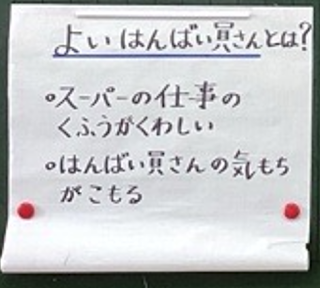 よいはんばい員さんとは?
○スーパーの仕事の
くふうがくわしい
○はんばい員さんの気もち
がこもる